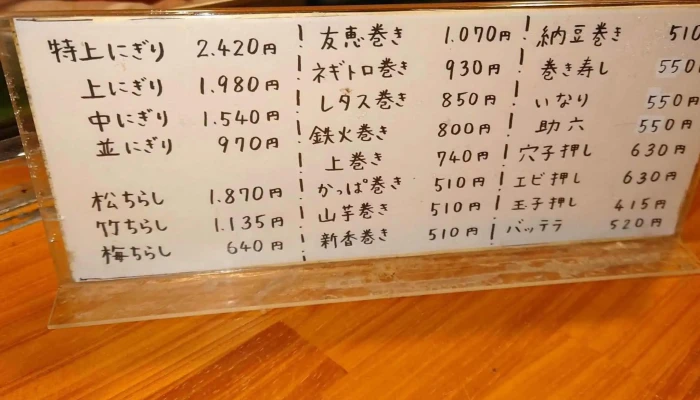 特上にぎり 2.420円
上にぎり 1.980円
中にぎり 1.540円
並にぎり 970円
松ちらし 1.870円
竹ちらし 1.135円
梅ちらし 640円
友恵巻き 1.070円
ネギトロ巻き 930円
レタス巻き 850円
鉄火巻き 800円
上巻き 740円
かっぱ巻き 510円
山芋巻き 510円
新香巻き 510円
納豆巻き 510
巻き寿し 550円
いなり 550円
助六 550円
穴子押し 630円
エビ押し 630円
玉子押し 415円
バッテラ 520円